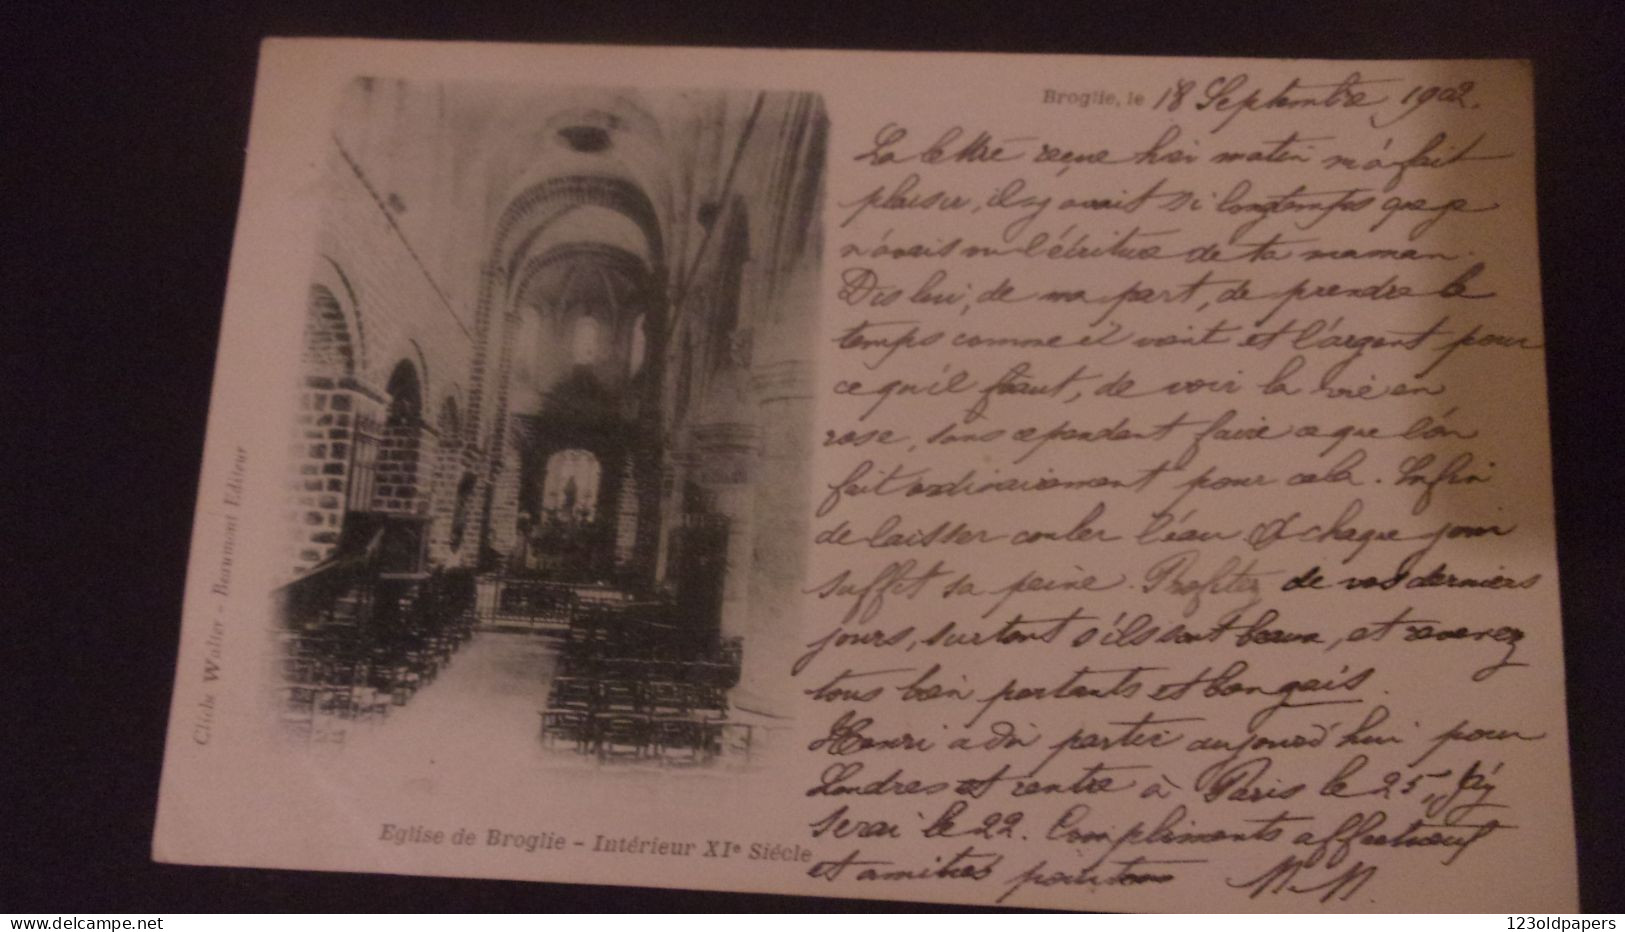 Broglie, le 18 Septembre 1902.
La lettre reçue hier matin m'a fait
plaisir, il y avait si longtemps que je
n'avais vu l'écriture de ta maman.
Dis lui, de ma part, de prendre le
temps comme il vient et l'argent pour
ce qu'il faut, de voir la vie en
rose, sans cependant faire ce que l'on
fait ordinairement pour cela. Enfin
de laisser couler l'eau. A chaque jour
suffit sa peine. Profitez de vos derniers
jours, surtout s'ils sont beaux, et revenez
tous bien portants et bon gais.
Henri a dû partir aujourd'hui pour
Londres et rentre à Paris le 25, j'y
serai le 22. Compliments affectueux
et amitiés pour tous M. M.
Cliché Walter - Beaumont Editeur
Eglise de Broglie - Intérieur XIe Siécle
www.delcampe.net
123oldpapers